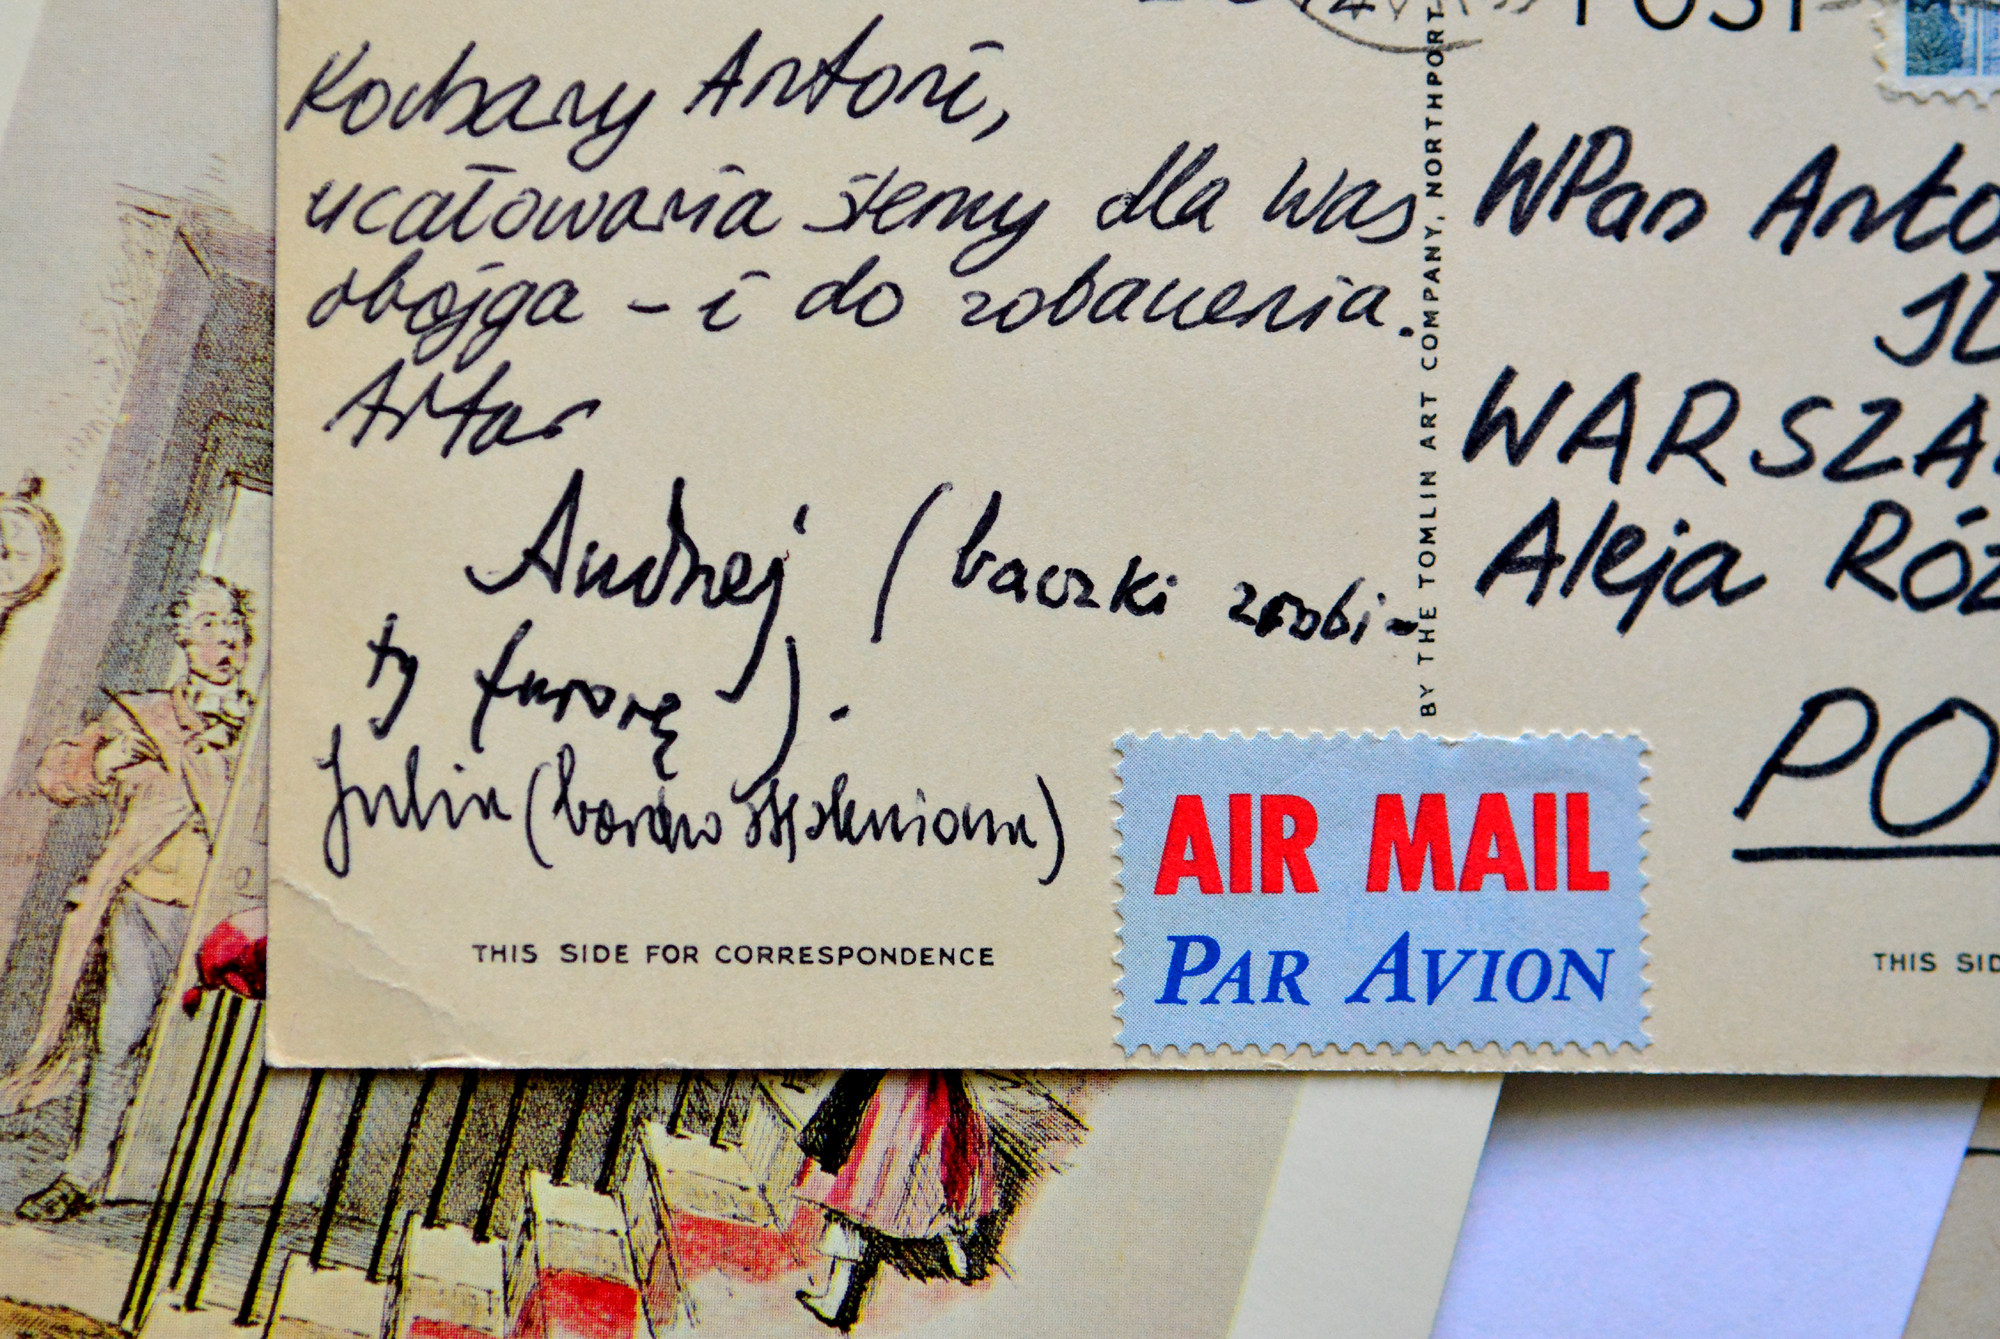 Kochany Antoni,
ucałowania ślemy dla Was
obojga – i do zobaczenia.
Artur
Andrzej (baczki zrobi-
ły furorę).
Julia (bardzo stęskniona)
THIS SIDE FOR CORRESPONDENCE
BY THE TOMLIN ART COMPANY, NORTHPORT
POST
WPan Anto
WARSZA
Aleja Róż
PO
AIR MAIL
PAR AVION
THIS SID